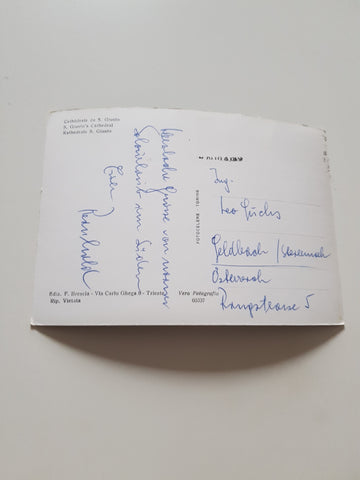 Cathédrale de S. Giusto
S. Giusto's Cathedral
Kathedrale S. Giusto
Herzliche Grüsse von unserer
im Süden
Euer
Reinhold
Ediz. F. Brescia - Via Carlo Ghega 8 - Trieste
Rip. Vietata
Vera Fotografia
65337
FOTOCELERE - TORINO
Ing.
Leo Fuchs
Feldbach / Steiermark
Österreich
Ringstrasse 5